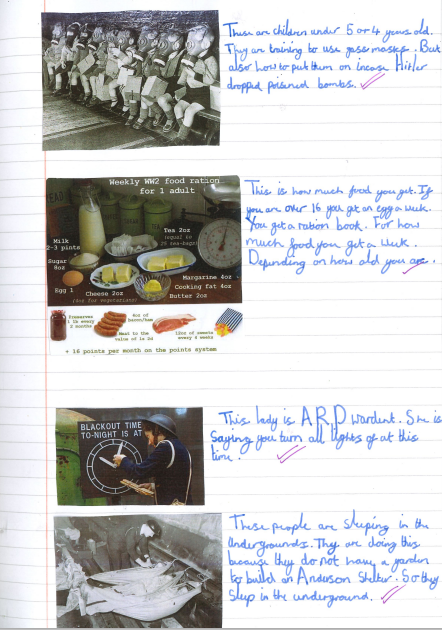 These are children under 5 or 4 years old.
They are training to use gass masks. But
also how to put them on incase Hitler
dropped poisened bombs.
Weekly WW2 food ration
for 1 adult
Tea 2oz
(equal to
25 tea-bags)
Milk
2-3 pints
Sugar
8oz
Egg 1
Cheese 2oz
(4oz for vegetarian)
Margarine 4oz
Cooking fat 4oz
Butter 2oz
Preserves
1 lb every
2 months
4oz of
bacon/ham
Meat to the
value of 1s 2d
12oz of sweets
every 4 weeks
+ 16 points per month on the points system
This is how much food you get. If
you are over 16 you get an egg a week.
You get a ration book. For how
much food you get a week.
Depending on how old you are.
BLACKOUT TIME
TO-NIGHT IS AT
This lady is A.R.P wardent. She is
saying you turn all lights of at this
time.
These people are sleeping in the
undergrounds. They are doing this
because they do not have a garden
to build an Anderson Shelter. So they
sleep in the underground.